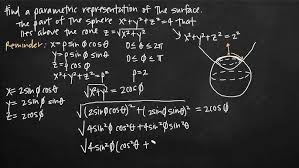 Find a parametric representation of the surface.
The part of the sphere x²+y²+z²=4 that
lies above the cone z=√x²+y²
Reminder: x=ρsinφcosθ 0≤θ≤2π
y=ρsinφsinθ 0≤φ≤π
z=ρcosφ
x²+y²+z²=ρ² ρ=2
x²+y²+z²=2²
x=2sinφcosθ
y=2sinφsinθ
z=2cosφ
√x²+y² = 2cosφ
√(2sinφcosθ)²+(2sinφsinθ)² = 2cosφ
√4sin²φcos²θ+4sin²φsin²θ
√4sin²φ(cos²θ+